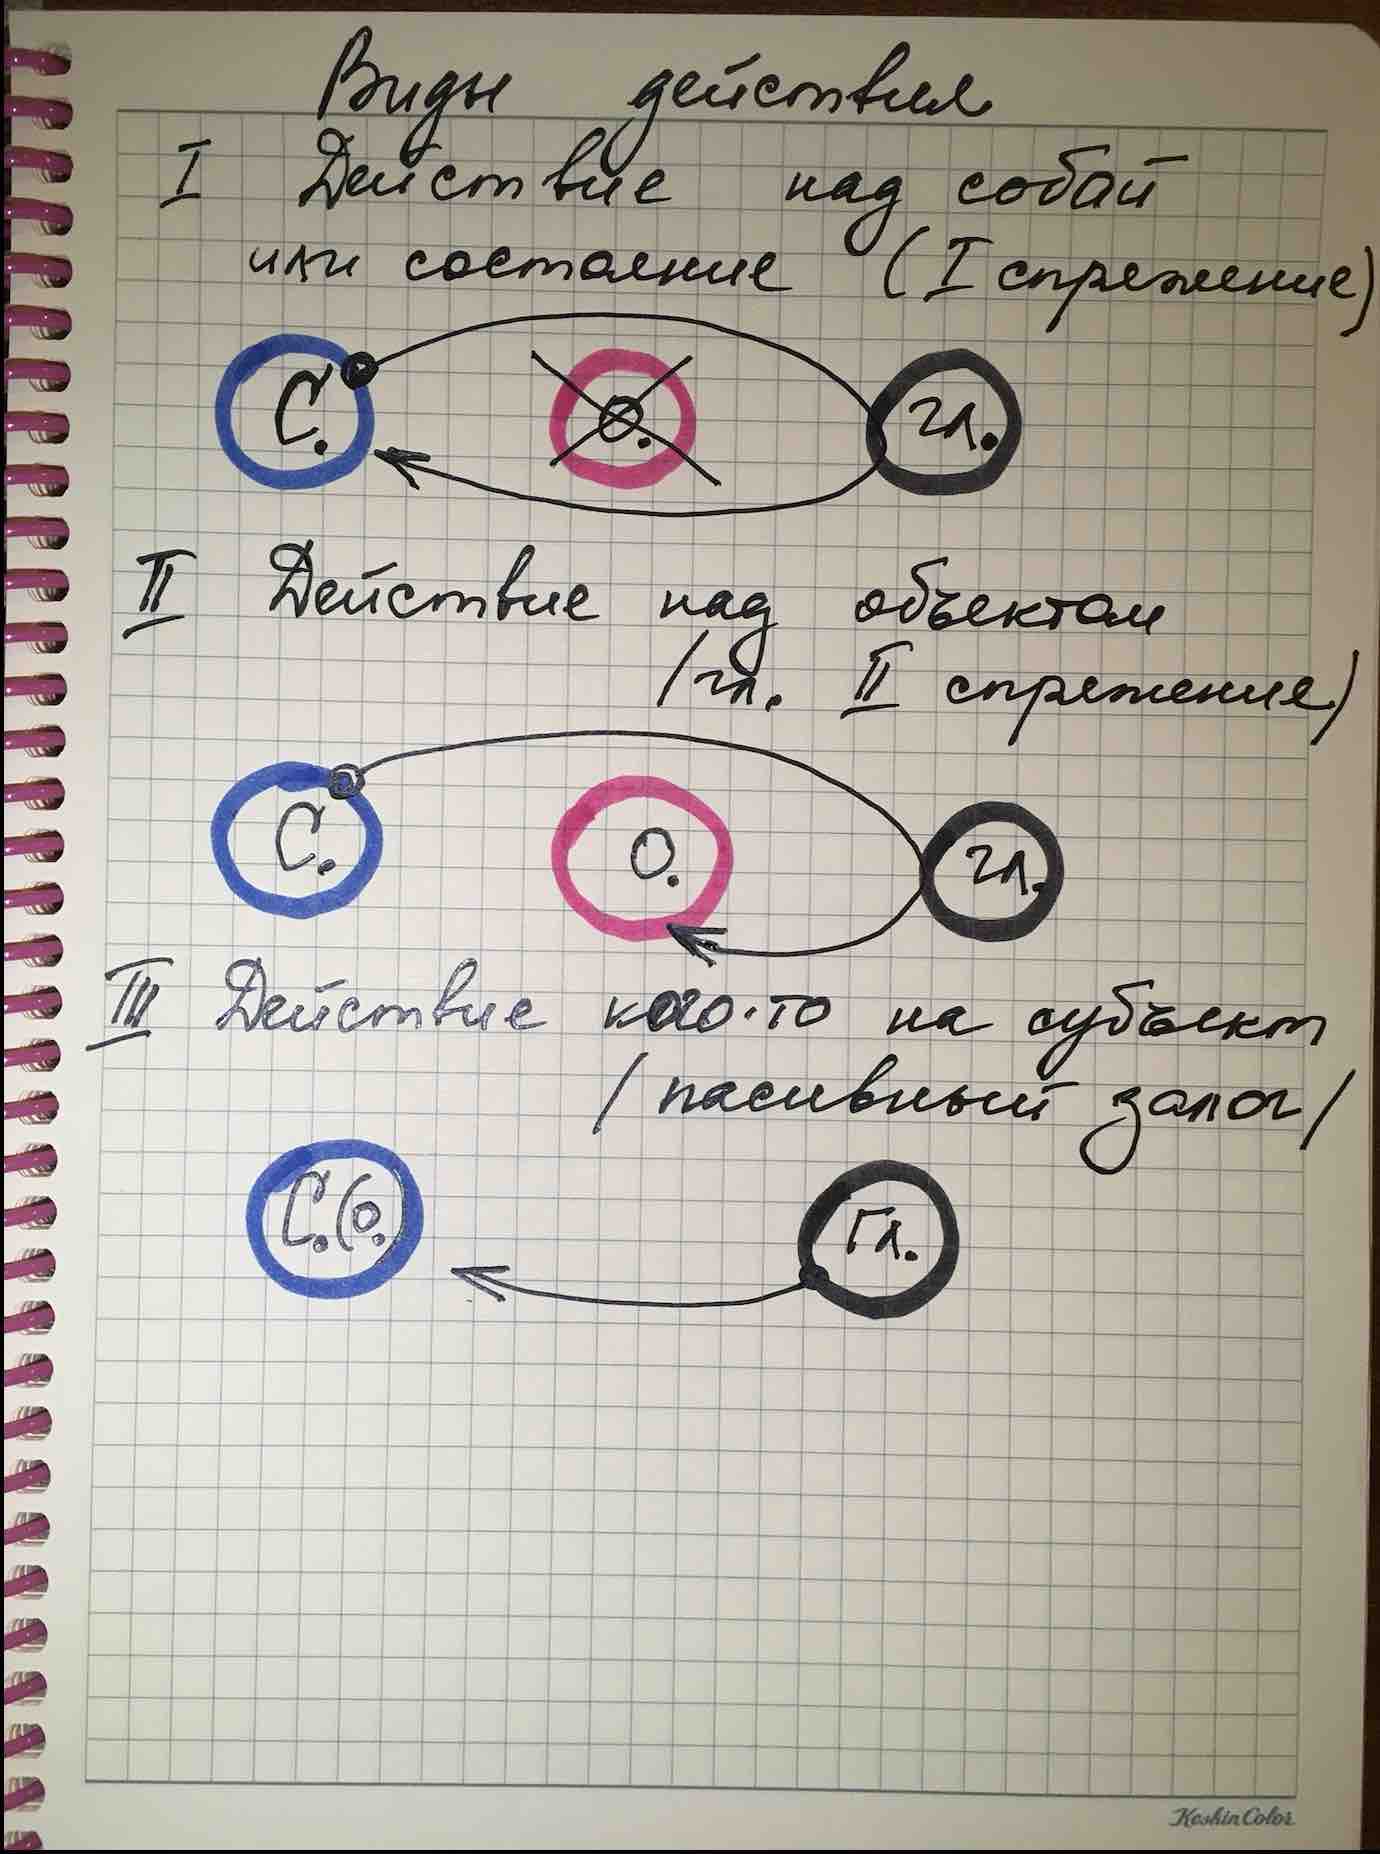 Виды действия
I Действие над собой
или состояние (I спряжение)
С. О. гл.
II Действие над объектом
/гл. II спряжение/
С. О. гл.
III Действие кого-то на субъект
/пасивный залог/
С.(о.) Гл.
KeshinColor